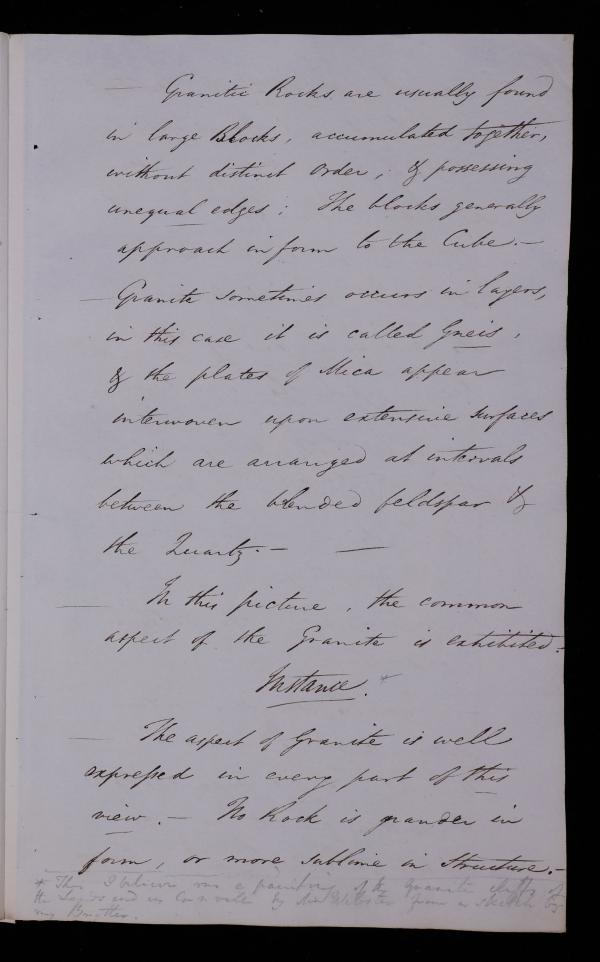 — Granitic Rocks are usually found
in large Blocks, accumulated together,
without distinct order, & possessing
unequal edges; The blocks generally
approach in form to the Cube. —
— Granite sometimes occurs in layers,
in this case it is called Gneis,
& the plates of Mica appear
interwoven upon extensive surfaces
which are arranged at intervals
between the blended feldspar &
the Quartz. — —
— In this picture, the common
aspect of the Granite is exhibited. -
Instance. *
— The aspect of Granite is well
expressed in every part of this
view. — No Rock is grander in
form, or more sublime in structure. -
* This I believe was a painting of the Granite cliffs of
the Lands end in Cornwall by Mr Webster from a sketch by
my Brother.